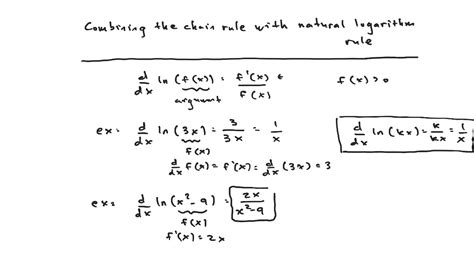 Combining the chain rule with natural logarithm
rule
d/dx ln(f(x)) = f'(x)/f(x)    f(x) > 0
argument
ex: d/dx ln(3x) = 3/3x = 1/x    d/dx ln(kx) = k/kx = 1/x
f(x)
d/dx f(x) = f'(x) = d/dx (3x) = 3
ex: d/dx ln(x²-9) = 2x/x²-9
f(x)
f'(x) = 2x